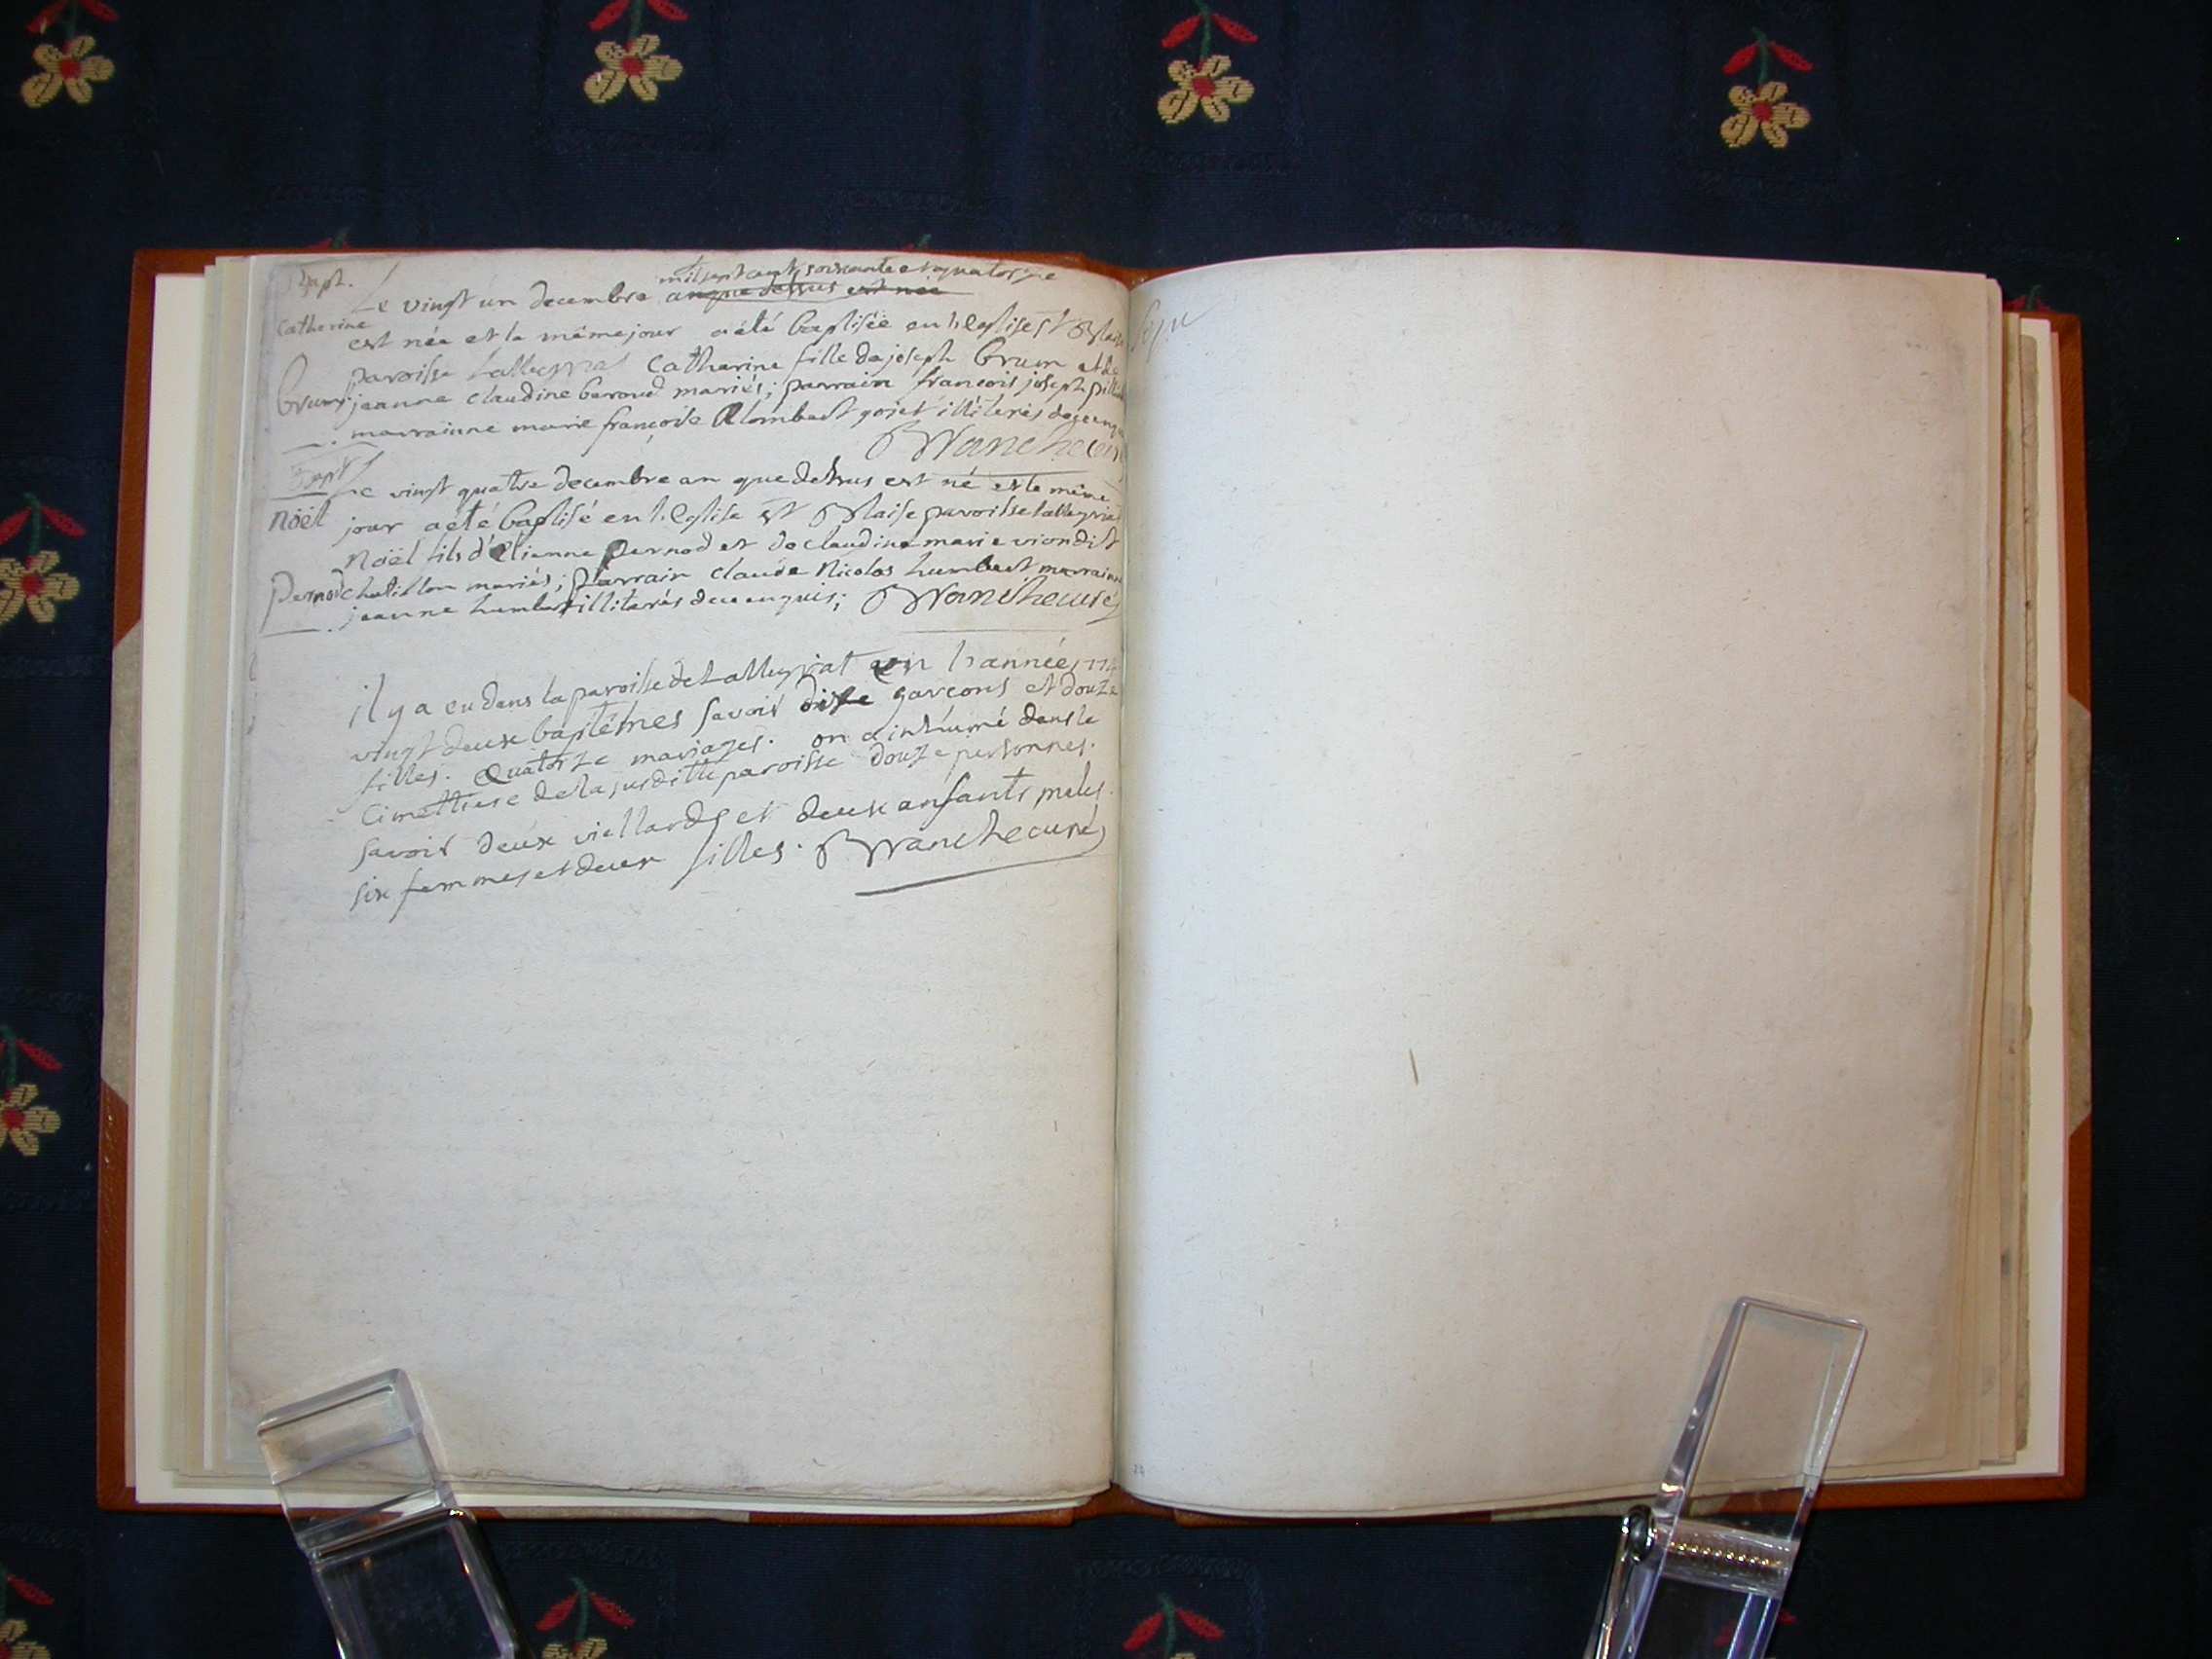 Bapt.
mil sept cent soixante et quatorze
Le vingt un decembre an que dessus est née
Catherine
est née et le même jour a été baptisée en l'eglise st Blaise
paroisse Lalleyriat Catherine fille de joseph brun et de
brun jeanne claudine beroud mariés; parrain françois joseph
marrainne marie françoise Alombert gojet illiterés de ce enquis
Branche curé
Bapt
Le vingt quatre decembre an que dessus est né et le même
Nöël jour a été baptisé en l'eglise st Blaise paroisse lalleyriat
Nöël fils d'Etienne pernod et de claudine marie viondit
Pernod chatillon mariés; parrain claude Nicolas humbert marrainne
jeanne humbert illiterés de ce enquis; Branche curé
il y a eu dans la paroisse de Lalleyriat en l'année 1774
vingt deux baptêmes savoir dix garçons et douze
filles. Quatorze mariages. on a inhumé dans le
Cimettiere de la susditte paroisse douze personnes.
savoir deux viellards et deux anfants males.
six femmes et deux filles. Branche curé
24